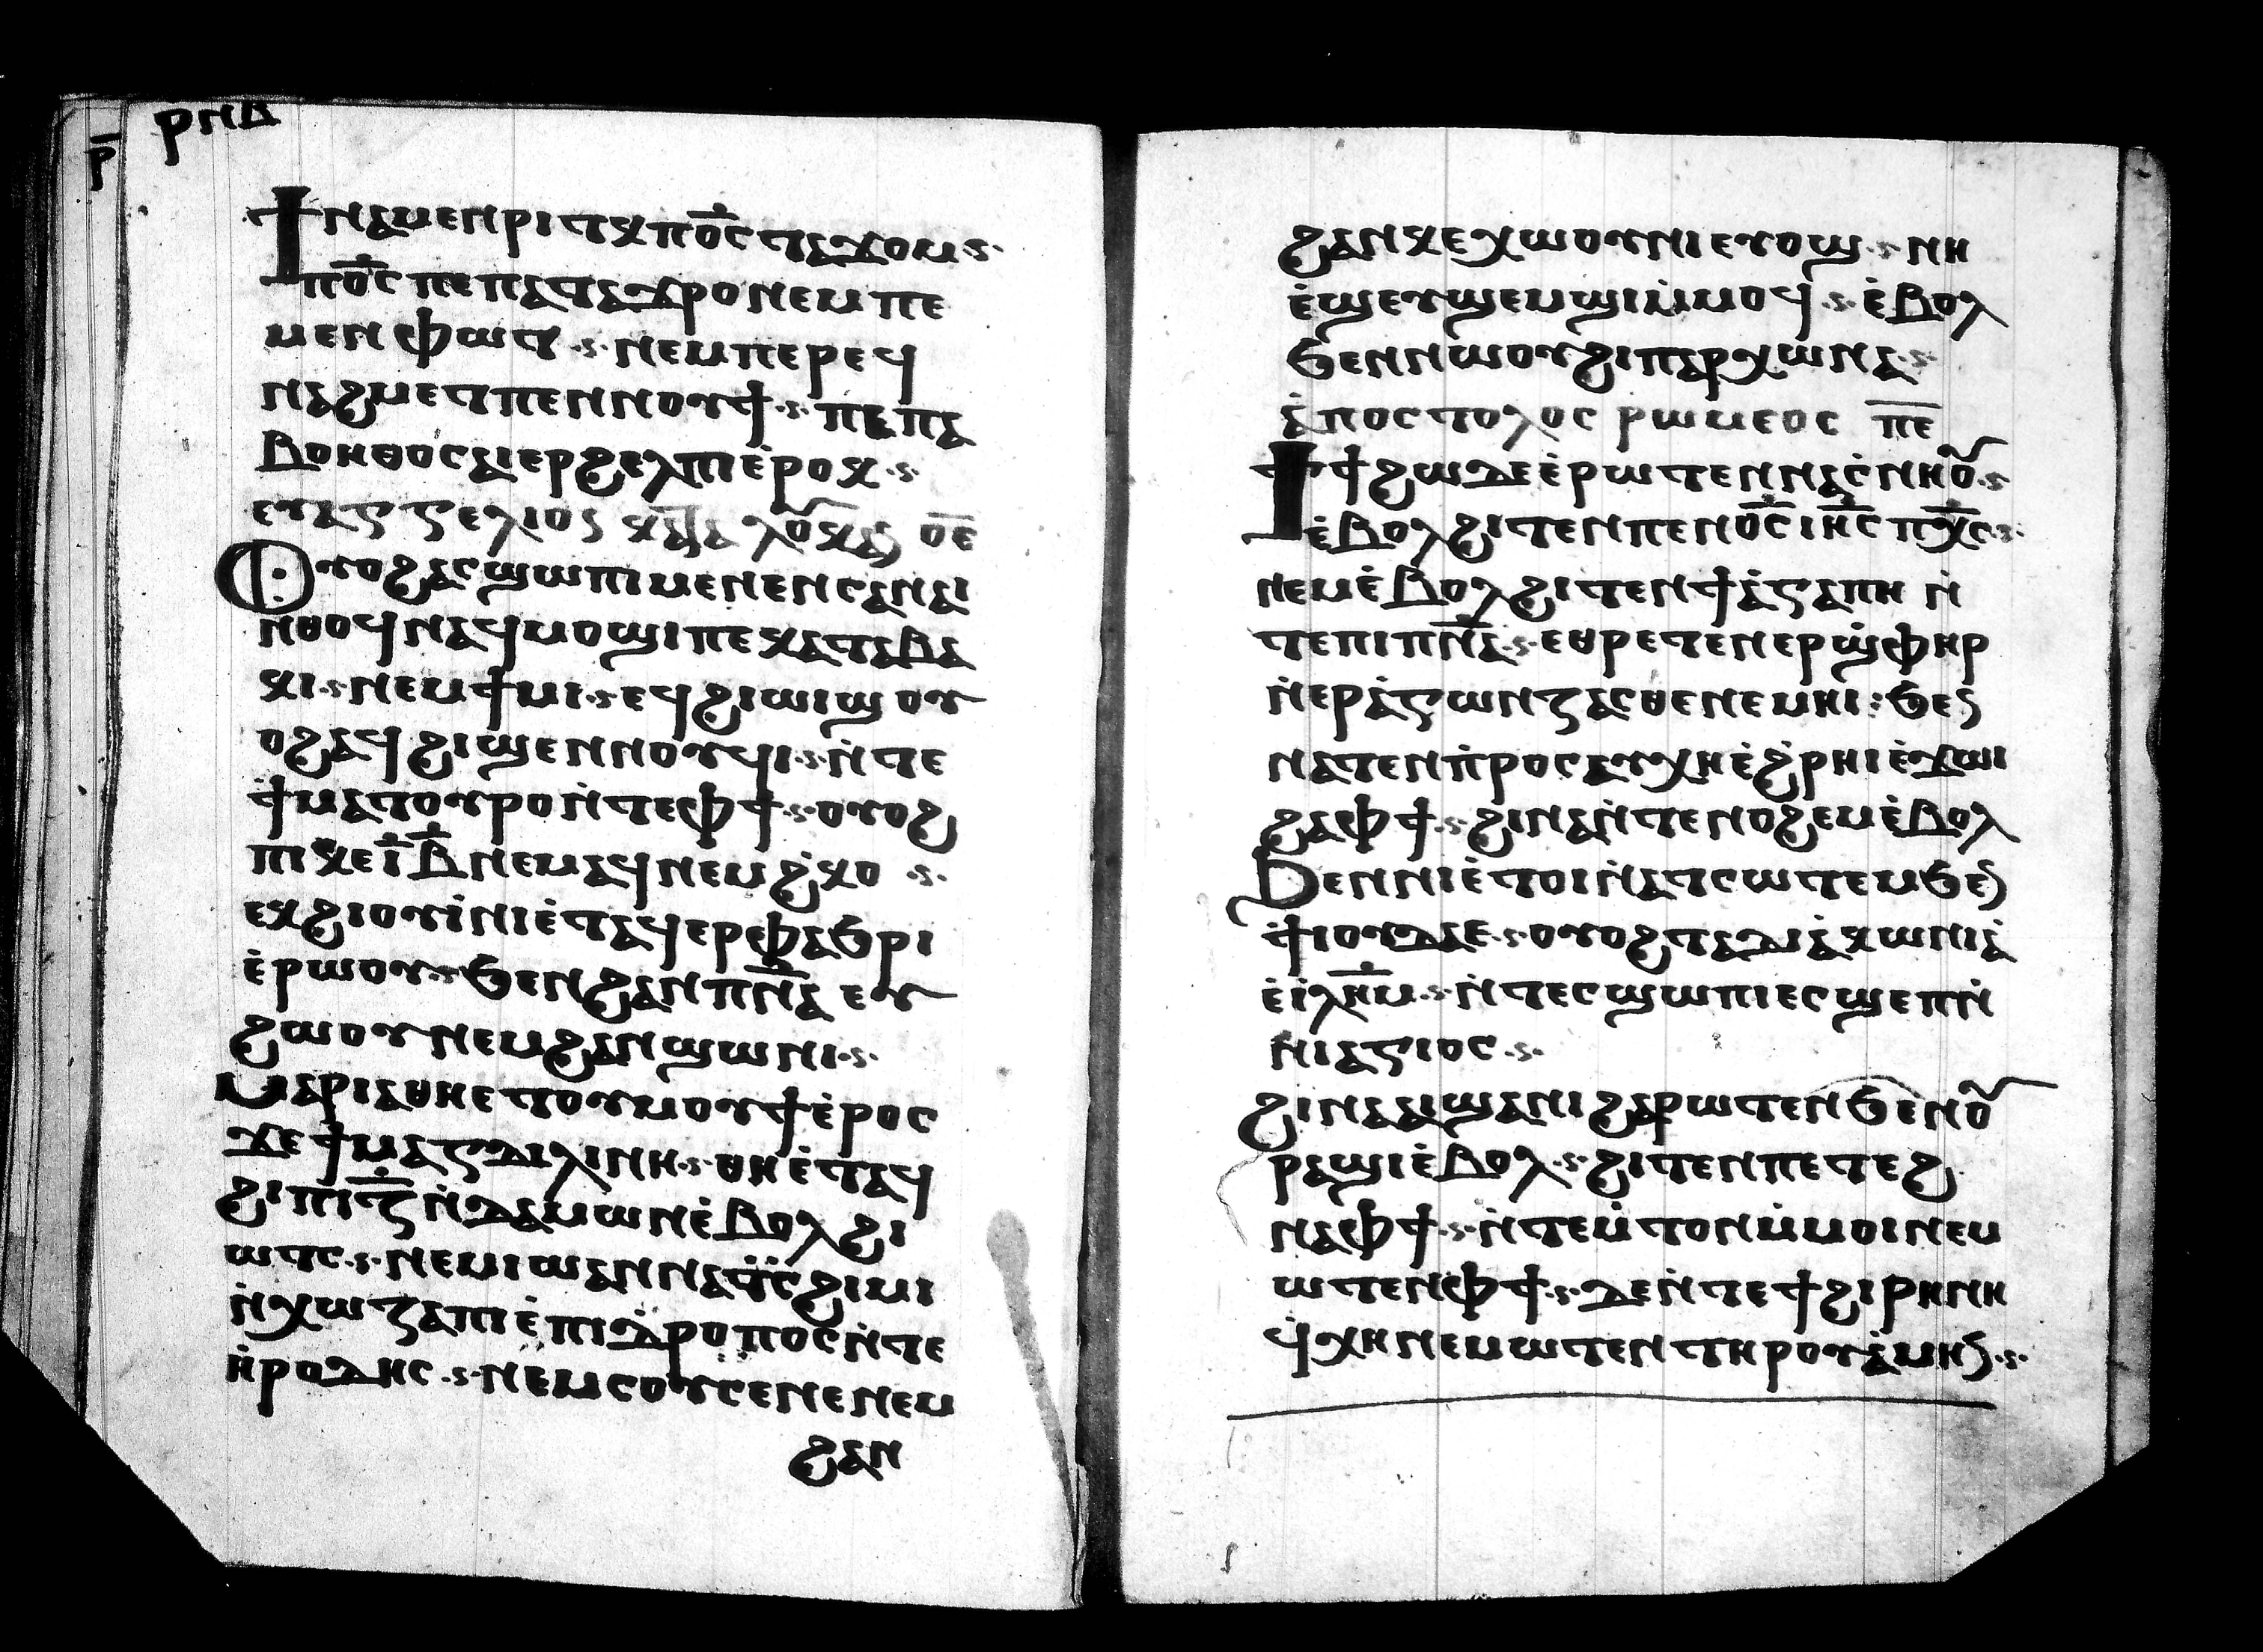 ⲣⲛⲃ
ⲣ̅
ϯⲛⲁⲙⲉⲛⲣⲓⲧⲕ ⲡⲟ̅ⲥ̅ ⲧⲁϫⲟⲙ ·ⲋ·
ⲡⲟ̅ⲥ̅ ⲡⲉ ⲡⲁⲧⲁϫⲣⲟ ⲛⲉⲙ ⲡⲉ
ⲙⲉⲛⲫⲱⲧ ·ⲋ· ⲛⲉⲙ ⲡⲉⲣⲉϥ
ⲛⲁϩⲙⲉⲧ ⲡⲉⲛⲛⲟⲩϯ ·ⲋ· ⲡⲉ ⲡⲁ
ⲃⲟⲏⲑⲟⲥ ⲁⲓⲉⲣϩⲉⲗⲡⲓ ⲉ̀ⲣⲟⲕ ·ⲋ·
ⲉⲩⲁⲅⲅⲉⲗⲓⲟⲛ ⲟ̅ⲉ̅
ⲟⲩⲟϩ ⲁⲥϣⲱⲡⲓ ⲙⲉⲛⲉⲛⲥⲁ ⲛⲁⲓ
ⲛⲑⲟϥ ⲛⲁϥⲙⲟϣⲓ ⲡⲉ ⲕⲁⲧⲁ ⲃⲁ
ⲕⲓ ·ⲋ· ⲛⲉⲙ ϯⲙⲓ ·ⲋ· ⲉϥϩⲓⲱⲓϣ ⲟⲩ
ⲟϩ ⲁϥϩⲓϣⲉⲛⲛⲟⲩϥⲓ ·ⲋ· ⲛ̀ⲧⲉ
ϯⲙⲁⲧⲟⲩⲣⲟ ⲛ̀ⲧⲉ ⲫϯ ·ⲋ· ⲟⲩⲟϩ
ⲡⲓⲕⲉ ⲓ̅ⲃ̅ ⲛⲉⲙⲁϥ ⲛⲉⲙ ϩ̀ⲕⲟ ·ⲋ·
ⲉⲕϩⲓⲟⲩⲓ̀ ⲛⲓⲉ̀ⲧⲁϥⲉⲣⲫⲁϧⲣⲓ
ⲉ̀ⲣⲱⲟⲩ ·ⲋ· ϧⲉⲛ ϩⲁⲛⲡⲛ̅ⲁ̅ ⲉⲩ
ϩⲱⲟⲩ ⲛⲉⲙ ϩⲁⲛϣⲱⲛⲓ ·ⲋ·
ⲙⲁⲣⲓⲁ ⲑⲏⲉⲧⲟⲩⲙⲟⲩϯ ⲉ̀ⲣⲟⲥ
ϫⲉ ϯⲙⲁⲅⲇⲓⲗⲓⲛⲏ ·ⲋ· ⲑⲏ ⲉ̀ⲧⲁϥ
ϩⲓ ⲡⲓⲍ̅ ⲛ̀ⲇⲁⲙⲱⲛ ⲉ̀ⲃⲟⲗ ϩⲓ
ⲱⲧⲥ ·ⲋ· ⲛⲉⲙ ⲓⲱⲁⲛⲛⲁ ⲧ̈ⲥ̈ϩⲓⲙⲓ
ⲛ̀ⲭⲱⲍⲁ ⲡⲓⲉ̀ⲡⲓⲇⲣⲟⲡⲟⲥ ⲛ̀ⲧⲉ
ⲏ̀ⲣⲟⲇⲏⲥ ·ⲋ· ⲛⲉⲙ ⲥⲟⲩⲥⲉⲛⲉ ⲛⲉⲙ
ϩⲁⲛ
ϩⲁⲛⲕⲉⲭⲱⲟⲩⲛⲓ ⲉⲩⲟϣ ·ⲋ· ⲛⲏ
ⲉ̀ϣⲉⲩϣⲉⲙϣⲓ ⲙ̀ⲙⲟϥ ·ⲋ· ⲉ̀ⲃⲟⲗ
ϧⲉⲛⲛⲱⲟⲩ ϩⲓⲡⲁⲣⲭⲱⲛⲁ ·ⲋ·
ⲁ̀ⲡⲟⲥⲧⲟⲗⲟⲥ ⲣⲱⲙⲉⲟⲥ ⲡ̅ⲉ̅
ϯϯϩⲱ ⲇⲉ ⲉ̀ⲣⲱⲧⲉⲛ ⲛⲁⲥ̀ⲛⲏⲟⲩ ·ⲋ·
ⲉ̀ⲃⲟⲗ ϩⲓⲧⲉⲛ ⲡⲉⲛⲟ̅ⲥ̅ ⲓⲏ̅ⲥ̅ ⲡⲭ̅ⲥ̅ ·ⲋ·
ⲛⲉⲙ ⲉ̀ⲃⲟⲗ ϩⲓⲧⲉⲛ ϯⲁ̀ⲅⲁⲡⲏ ⲛ̀
ⲧⲉ ⲡⲓⲡⲛ̅ⲁ̅ ·ⲋ· ⲉⲑⲣⲉⲧⲉⲛⲉⲣϣ̀ⲫⲏⲣ
ⲛ̀ⲉⲣⲁ̀ⲅⲱⲛⲍⲁⲥⲑⲉ ⲛⲉⲙⲏⲓ : ϧⲉⲛ
ⲛⲁⲧⲉⲛⲡ̀ⲣⲟⲥⲁⲩⲭⲏ ⲉ̀ϩ̀ⲣⲏⲓ ⲉ̀ϫⲱⲓ
ϩⲁ ⲫϯ ·ⲋ· ϩⲓⲛⲁ ⲛ̀ⲧⲉⲛⲟϩⲉⲙ ⲉ̀ⲃⲟⲗ
ϧⲉⲛ ⲛⲓⲉ̀ⲧⲟⲓ ⲛ̀ⲁⲧⲥⲱⲧⲉⲙ ϧⲉⲛ
ϯⲓⲟⲩⲇⲁⲉ ·ⲋ· ⲟⲩⲟϩ ⲧⲁⲇⲓⲁ̀ⲕⲱⲛⲓⲁ̀
ⲉ̀ⲓ̀ⲗⲏ̅ⲙ̅ ·ⲋ· ⲛ̀ⲧⲉⲥϣⲱⲡⲓ ⲉⲥϣⲉⲡ ⲛ̀
ⲛⲓⲁⲅⲓⲟⲥ ·ⲋ·
ϩⲓⲛⲁ ⲁⲓϣⲁⲛⲓ ϩⲁⲣⲱⲧⲉⲛ ϧⲉⲛ ⲟⲩ
ⲣⲁϣⲓ ⲉ̀ⲃⲟⲗ ·ⲋ· ϩⲓⲧⲉⲛ ⲡⲉⲧⲉϩ
ⲛⲁ ⲫϯ ·ⲋ· ⲛ̀ⲧⲉⲙ̀ⲧⲟⲛ ⲙ̀ⲙⲟⲓ ⲛⲉⲙ
ⲱⲧⲉⲛ ⲫϯ ·ⲋ· ⲇⲉ ⲛ̀ⲧⲉ ϯϩⲓⲣⲏⲛⲏ
ϥ̀ⲭⲏ ⲛⲉⲙⲱⲧⲉⲛ ⲧⲏⲣⲟⲩ ⲁ̀ⲙⲏⲛ ·ⲋ·